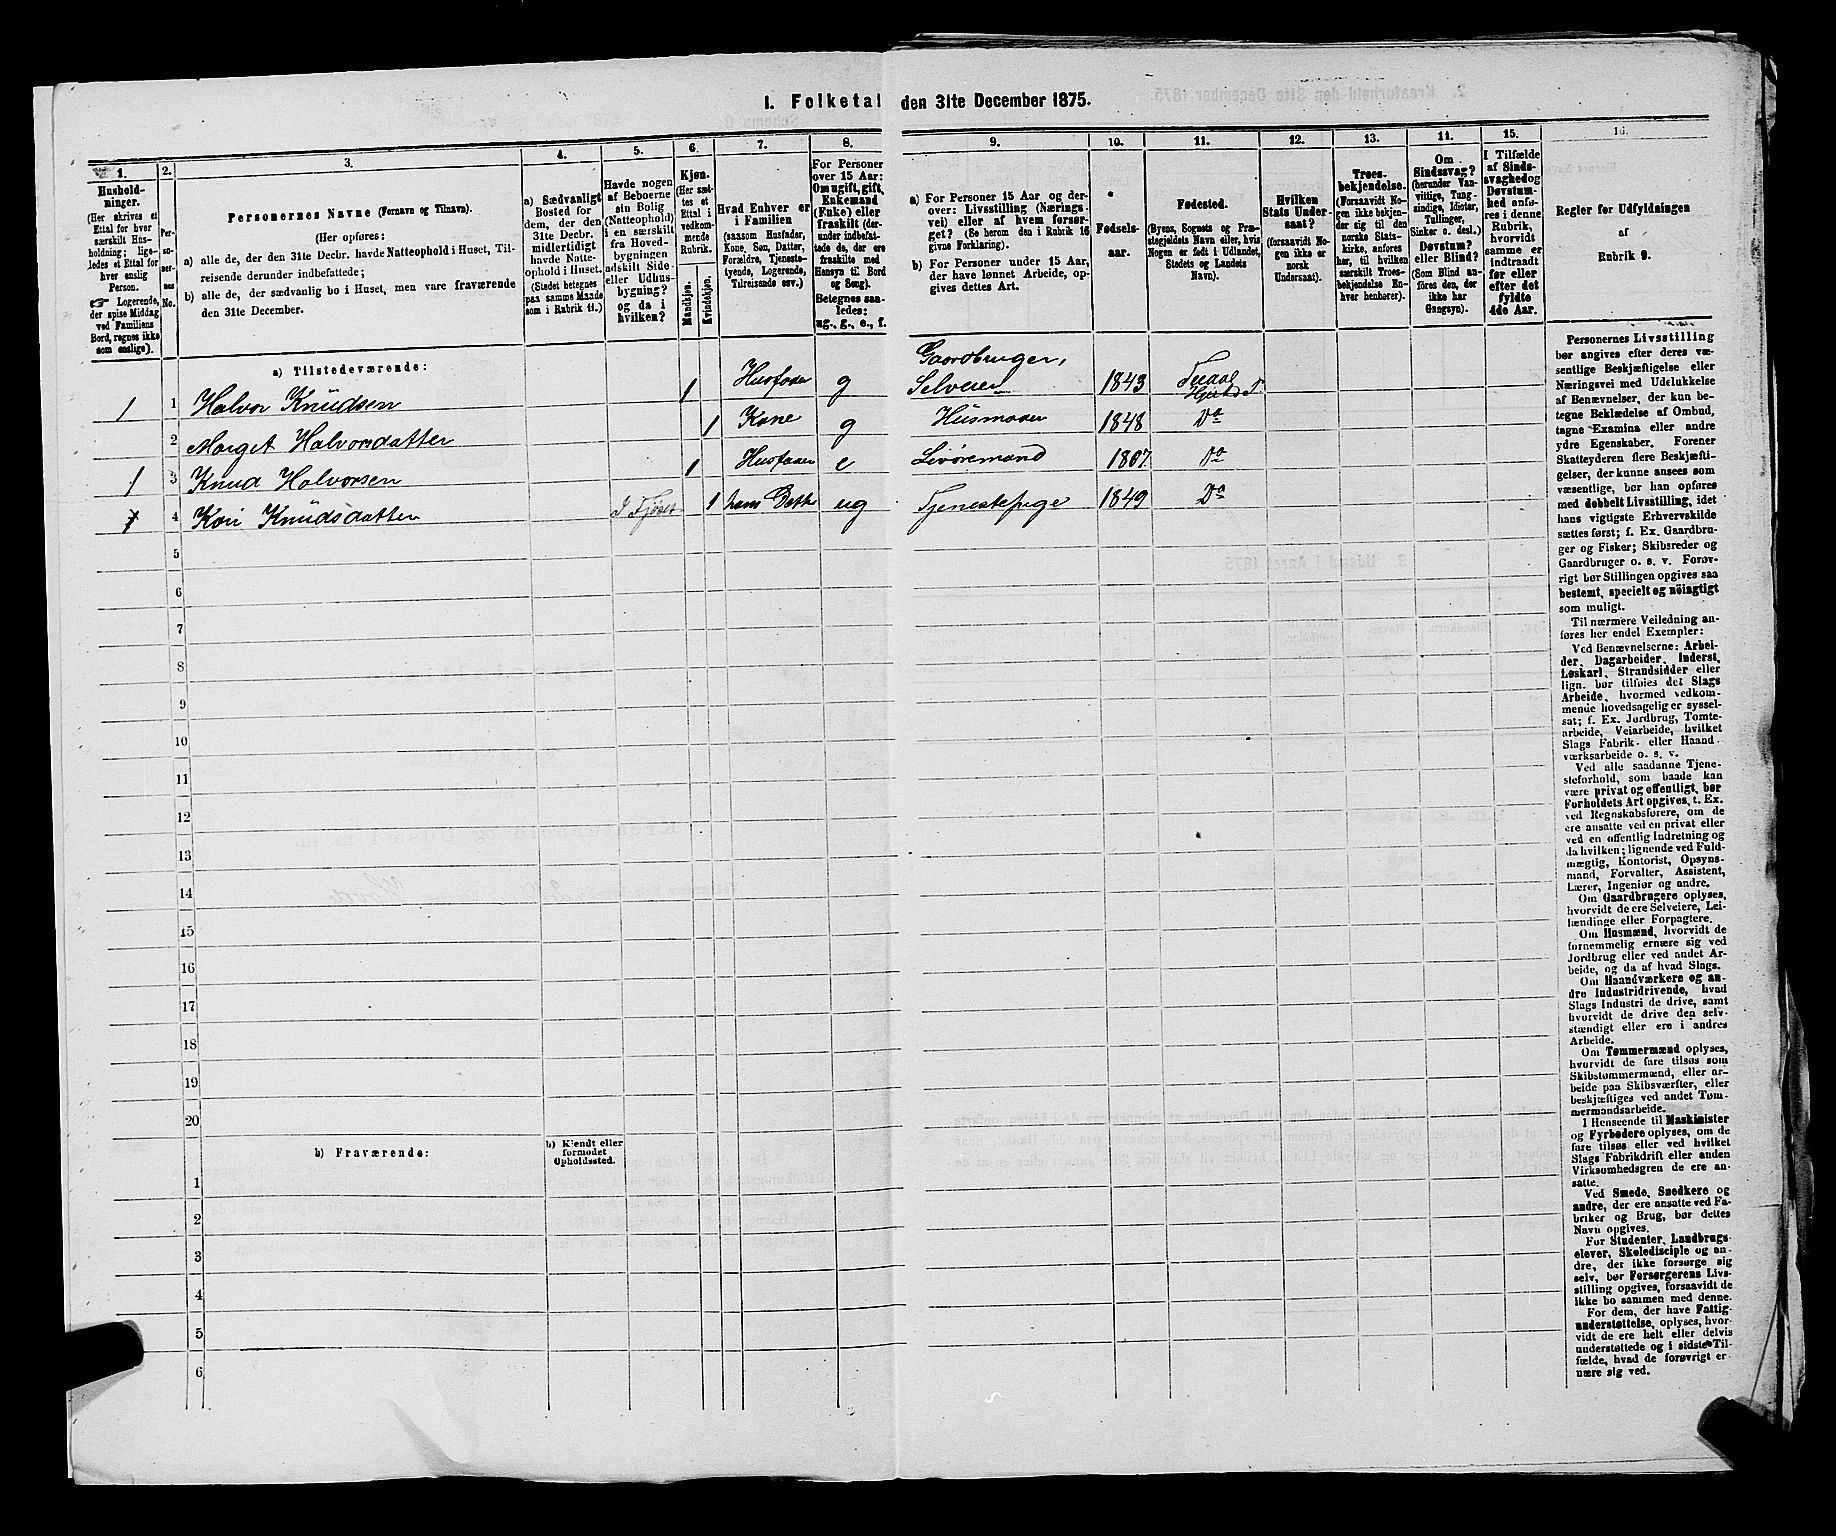 1. Folketal den 31te December 1875.
1.
2.
3.
4.
5.
6.
7.
8.
9.
10.
11.
12.
13.
14.
15.
16.
Hushold-
ninger.
(Her skrives et
Ettal for hver
særskilt Hus-
holdning; lige-
ledes et Ettal for
hver enslig
Person.
☞ Logerende,
der spise Middag
ved Familiens
Bord, regnes ikke
som enslige).
Per-
so-
ner-
nes
No.
Personernes Navne (Fornavn og Tilnavn).
(Her opføres:
a) alle de, der den 31te Decbr. havde Natteophold i Huset, Til-
reisende derunder indbefattede;
b) alle de, der sædvanlig bo i Huset, men vare fraværende
den 31te December.
a) Sædvanligt
Bosted for
dem, der den
31te Decbr.
midlertidigt
havde Natte-
ophold i Huset.
(Stedet betegnes
paa samme Maade
som i Rubrik 11.)
Havde nogen
af Beboerne
sin Bolig
(Natteophold)
i en særskilt
fra Hoved-
bygningen
adskilt Side-
eller Udhus-
bygning?
og da i
hvilken?
Kjøn.
(Her sæt-
tes et
Ettal i
vedkom-
mende
Rubrik.
Mandkjøn.
Kvindekjøn.
Hvad Enhver er
i Familien
(saasom Husfader,
Kone, Søn, Datter,
Forældre, Tjeneste-
tyende, Logerende,
Tilreisende osv.)
For Personer
over 15 Aar:
Om ugift, gift,
Enkemand
(Enke) eller
fraskilt (der-
under indbefat-
tede de, der ere
fraskilte med
Hensyn til Bord
og Seng).
Betegnes saa-
ledes:
ug., g., e., f.
a) For Personer 15 Aar og der-
over: Livsstilling (Nærings-
vei) eller af hvem forsør-
get? (Se herom den i Rubrik 16
givne Forklaring).
b) For Personer under 15 Aar,
der have lønnet Arbeide, op-
gives dettes Art.
Fødsels-
aar.
Fødested.
(Byens, Sognets og Præ-
stegjeldets Navn eller, hvis
Nogen er født i Udlandet,
Stedets og Landets
Navn).
Hvilken
Stats Under-
saat?
(forsaavidt No-
gen ikke er
norsk
Undersaat).
Troes-
bekjendelse.
(Forsaavidt No-
gen ikke bekjen-
der sig til den
norske Stats-
kirke, anføres
her, til hvilken
særskilt Troes-
bekjendelse En-
hver henhører).
Om
Sindssvag?
(herunder Van-
vittige, Tung-
sindige, Idioter,
Tullinger,
Sinker o. desl.)
Døvstum?
eller Blind?
(Som Blind an-
føres den, der
ikke har
Gangsyn).
I Tilfælde
af Sinds-
svaghed og
Døvstum-
hed anfø-
res i denne
Rubrik,
hvorvidt
samme er
indtraadt
før eller
efter det
fyldte
4de Aar.
Regler for Udfyldningen
af
Rubrik 9.
a) Tilstedeværende:
1 1 Halvor Knudsen 1 Husfader g Gaardbruger, Selveier 1843
2 Marget Halvorsdatter 1 Kone g Husmoder 1848 Do
1 3 Knud Halvorsen 1 Husfader e 1807 Do
4 Kari Knudsdatter I Fjøset 1 hans Datter ug Tjenestepige 1849 Do
5
6
7
8
9
10
11
12
13
14
15
16
17
18
19
20
b) Fraværende:
b) Kjendt eller
formodet
Opholdssted.
1
2
3
4
5
6
Personernes Livsstilling
bør angives efter deres væ-
sentlige Beskjæftigelse eller
Næringsvei med Udelukkelse
af Benævnelser, der kun be-
tegne Beklædelse af Ombud,
tagne Examina eller andre
ydre Egenskaber. Forener
Skatteyderen flere Beskjæfti-
gelser, der kunne ansees som
væsentlige, bør han opføres
med dobbelt Livsstilling, idet
hans vigtigste Erhvervskilde
sættes først; f. Ex. Gaardbru-
ger og Fisker; Skibsreder og
Gaardbruger o. s. v. Forøv-
rigt bør Stillingen opgives saa
bestemt, specielt og nøiagtigt
som muligt.
Til nærmere Veiledning an-
føres her endel Exempler:
Ved Benævnelserne: Arbei-
der, Dagarbeider, Inderst,
Løskarl, Strandsidder eller
lign. bør tilføies det Slags
Arbeide, hvormed vedkom-
mende hovedsagelig er syssel-
sat; f. Ex. Jordbrug, Tomte-
arbeide, Veiarbeide, hvilket
Slags Fabrik- eller Haand-
værksarbeide o. s. v.
Ved alle saadanne Tjene-
steforhold, som baade kan
være privat og offentligt, bør
Forholdets Art opgives, t. Ex.
ved Regnskabsførere, om de
ere ansatte ved en privat eller
ved en offentlig Indretning og
da hvilken; lignende ved Fuld-
mægtig, Kontorist, Opsyns-
mand, Forvalter, Assistent,
Lærer, Ingeniør og andre.
Om Gaardbrugere oplyses,
hvorvidt de ere Selveiere, Lei-
lændinge eller Forpagtere.
Om Husmænd, hvorvidt de
fornemmelig ernære sig ved
Jordbrug eller ved andet Ar-
beide, og da af hvad Slags.
Om Haandværkere og an-
dre Industridrivende, hvad
Slags Industri de drive, samt
hvorvidt de drive den selv-
stændigt eller ere i andres
Arbeide.
Om Tømmermænd oplyses,
hvorvidt de fare tilsøs som
Skibstømmermænd, eller ar-
beide paa Skibsværfter, eller
beskjæftiges ved andet Tøm-
mermandsarbeide.
I Henseende til Maskinister
og Fyrbødere oplyses, om de
fare tilsøs eller ved hvilket
Slags Fabrikdrift eller anden
Virksomhedsgren de ere an-
satte.
Ved Smede, Snedkere og
andre, der ere ansatte ved Fa-
briker og Brug, bør dettes
Navn opgives.
For Studenter, Landbrugs-
elever, Skoledisciple og an-
dre, der ikke forsørge sig
selv, bør Forsørgerens Livs-
stilling opgives, forsaavidt de
ikke bo sammen med denne.
For dem, der have Fattig-
understøttelse, oplyses, hvor-
vidt de ere helt eller delvis
understøttede og i sidste Til-
fælde, hvad de forøvrigt er-
nære sig ved.